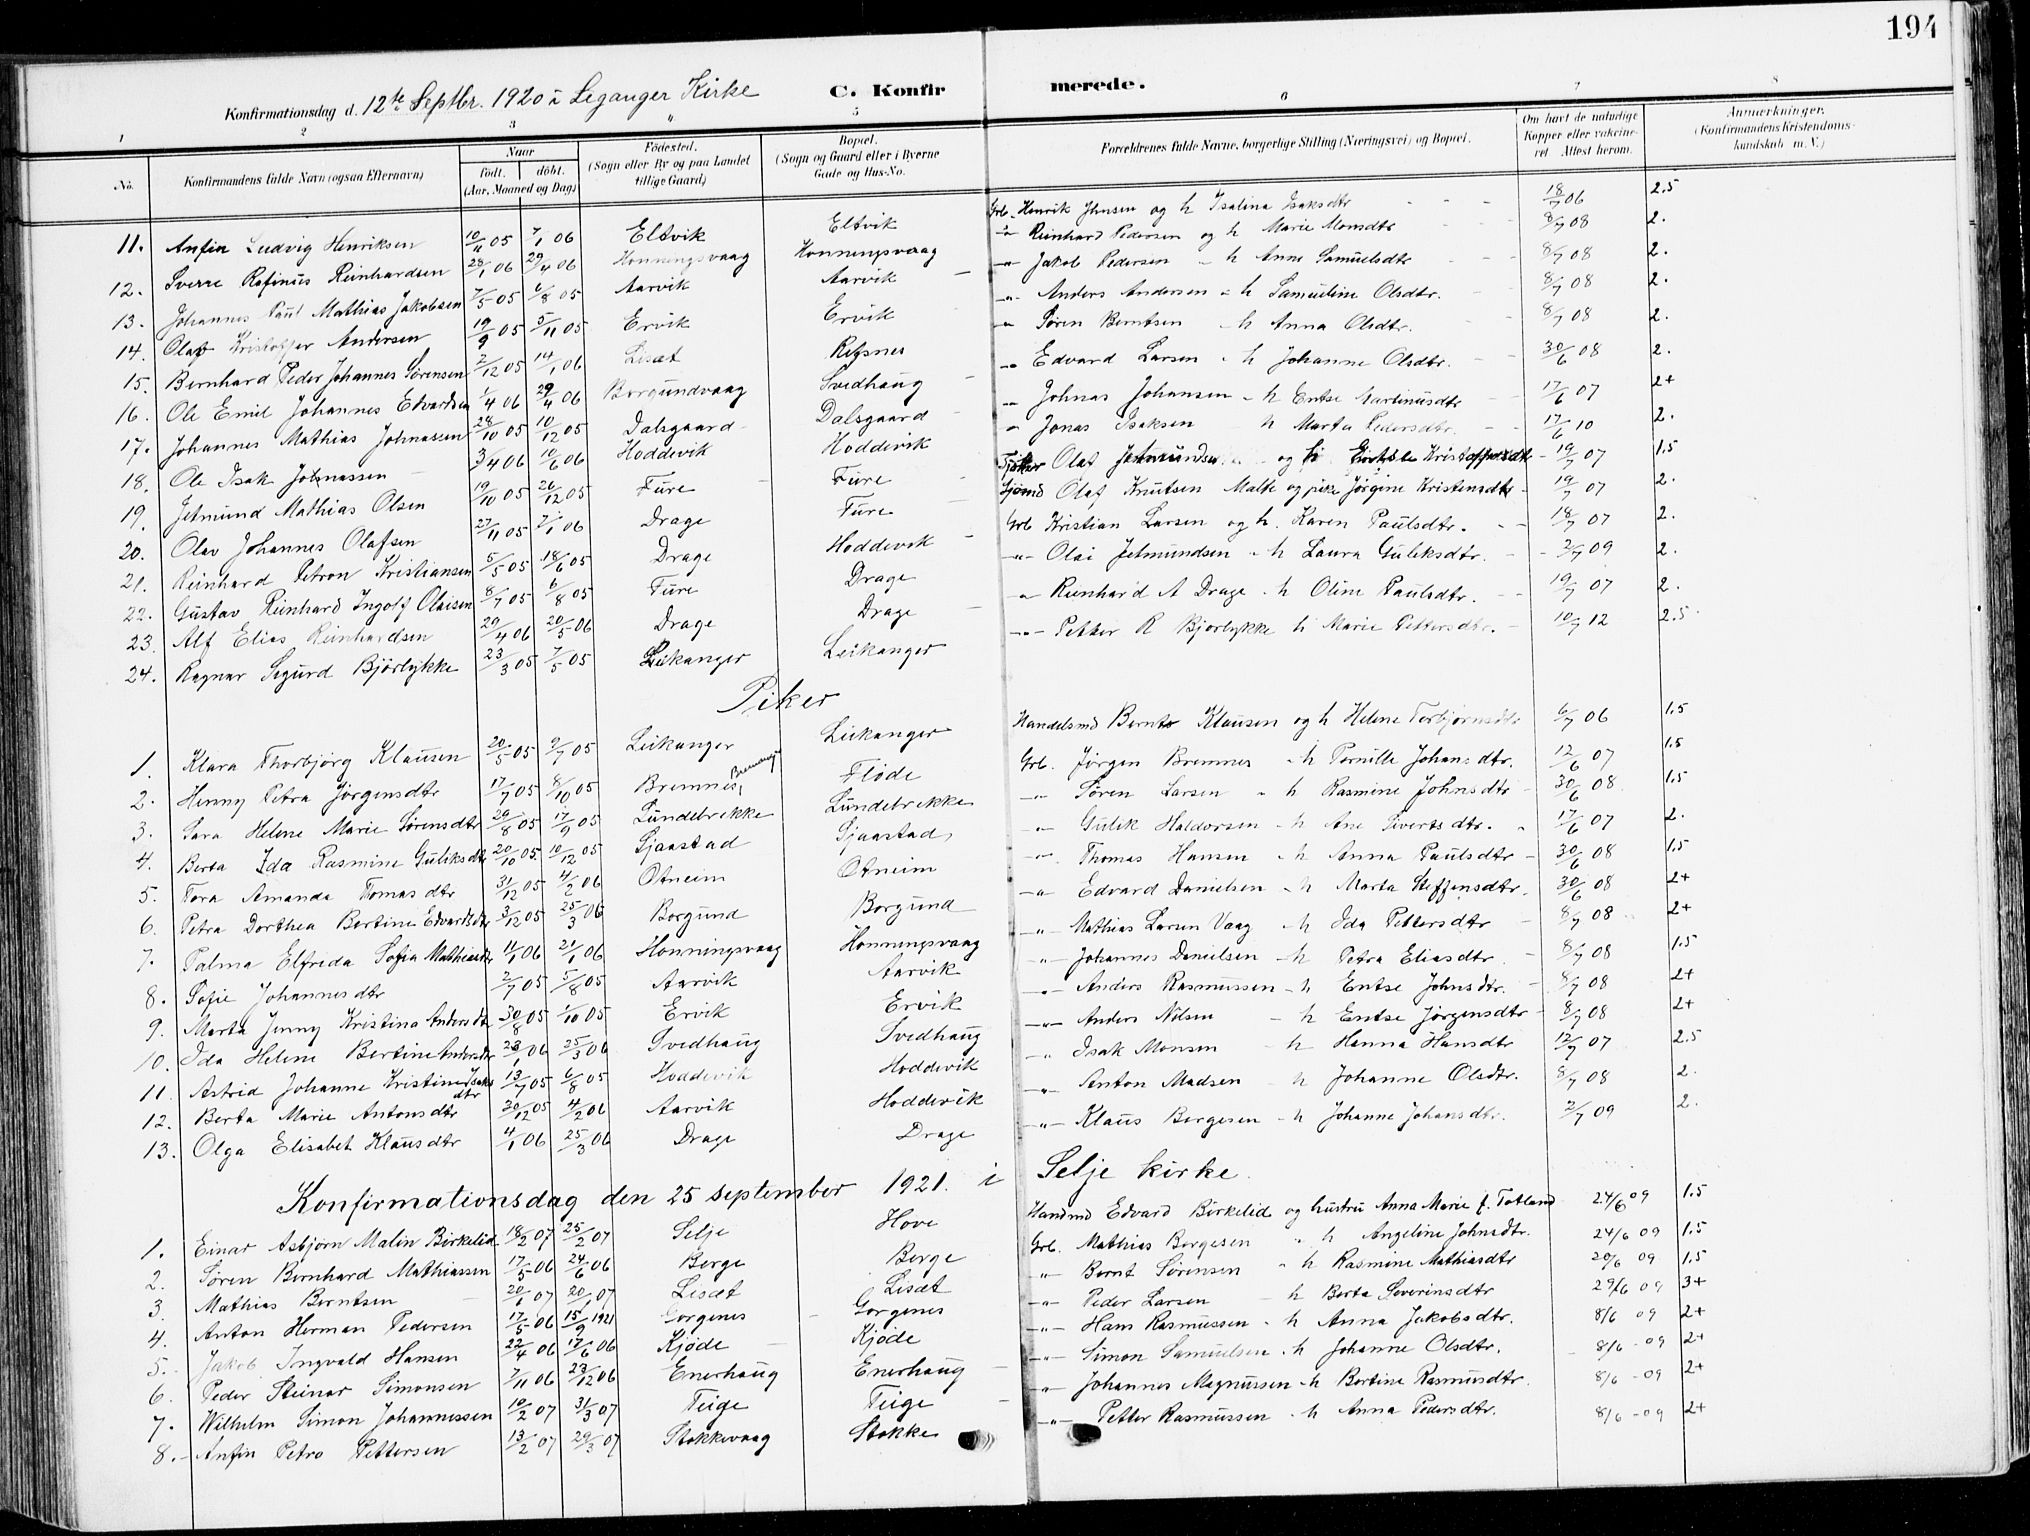 194
Konfirmationsdag d. 12te Septbr. 1920 i Leganger Kirke C. Konfirmerede.
1 2 3 4 5 6 7 8
No. Konfirmandens fulde Navn (ogsaa Efternavn) Naar født. døbt. (Aar, Maaned og Dag) Fødested. (Sogn eller By og paa Landet tillige Gaard) Bopæl. (Sogn og Gaard eller i Byerne Gade og Hus-No. Forældrenes fulde Navne, borgerlige Stilling (Næringsvei) og Bopæl. Om havt de naturlige Kopper eller vakcineret. Attest herom. Anmærkninger. (Konfirmandens Kristendomskundskab m. V.)
11. Anfin Ludvig Henriksen 10/11 05 7/1 06 Eltvik Eltvik Grb. Henrik Jhnsen og h Isalina Isaksdtr 18/7 06 2.5
12. Sverre Rafinus Reinhardsen 28/1 06 29/4 06 Honningsvaag Honningsvaag -"- Reinhard Pedersen og h Marie Monsdtr 8/7 08 2.
13. Johannes Paul Mathias Jakobsen 7/5 05 6/8 05 Aarvik Aarvik -"- Jakob Pedersen - h Anne Samuelsdtr 8/7 08 2.
14. Olaf Kristoffer Andersen 19/9 05 5/11 05 Ervik Ervik -"- Anders Andersen - h Samueline Olsdtr. 8/7 08 2.
15. Bernhard Peder Johannes Sørensen 2/12 05 14/1 06 Lisæt Refsnes " Søren Berntsen - h Anna Olsdtr. 8/7 08 2.
16. Ole Emil Johannes Edvardsen 1/4 06 29/4 06 Borgundvaag Svedhaug -"- Edvard Larsen - h Johanne Olsdtr. 30/6 08 2.
17. Johannes Mathias Johnassen 28/10 05 10/12 05 Dalsgaard Dalsgaard " Johnas Johansen - h Entse Martinusdtr 17/6 07 2+
18. Ole Isak Johnassen 3/4 06 10/6 06 Hoddevik Hoddevik " Jonas Isaksen h Marta Pedersdtr. 17/6 10 2.
19. Jetmund Mathias Olsen 19/10 05 26/12 05 Fure Fure Olaf Jetmundsen og h Kristoffersdtr 19/7 07 1.5
20. Olav Johannes Olafsen 27/11 05 7/1 06 Drage Fure Sjømd Olaf Knutsen Malte og pike Jørgine Kristensdtr 19/7 07 2.
21. Reinhard Petron Kristiansen 5/5 05 18/6 05 Drage Hoddevik Grb Kristian Larsen og h. Karen Paulsdtr. 18/7 07 2.
22. Gustav Reinhard Ingolf Olaisen 8/7 05 6/8 05 Fure Drage -"- Olai Jetmundsen - h Laura Guliksdtr. 2/7 09 2.
23. Alf Elias Reinhardsen 29/4 06 20/5 06 Drage Drage " Reinhard A Drage - h Oline Paulsdtr. 19/7 07 2.
24. Ragnar Sigurd Bjørlykke 23/3 05 7/5 05 Leikanger Leikanger -"- Petter R Bjørlykke h Marie Pettersdtr. 10/7 12 2.5
Piker
1. Klara Thorbjørg Klausen 20/5 05 9/7 05 Leikanger Leikanger Handelsmd Bernt Klausen og h Helene Torbjørnsdtr 6/7 06 1.5
2. Henny Petra Jørgensdtr 17/7 05 8/10 05 Bremnes, Bremanger Fløde Grb. Jørgen Bremnes - h Pernille Johansdtr. 12/6 07 1.5
3. Sara Helene Marie Sørensdtr 20/8 05 17/9 05 Lundebrekke Lundebrekke -"- Søren Larsen - h Rasmine Johnsdtr 30/6 08 1.5
4. Berta Ida Rasmine Guliksdtr 20/10 05 10/12 05 Sjaastad Sjaastad -"- Gulik Haldorsen - h Ane Sivertsdtr. 17/6 07 2.
5. Tora Amanda Tomasdtr 31/12 05 4/2 06 Otneim Otneim -"- Thomas Hansen - h Anna Paulsdtr 30/6 08 1.5
6. Petra Dorthea Bertine Edvardsdtr 3/12 05 25/3 06 Borgund Borgund -"- Edvard Danielsen - h Marta Steffensdtr. 30/6 08 2+
7. Palma Elfreda Sofia Mathiasdtr 4/1 06 21/1 06 Honningsvaag Honningsvaag -"- Mathias Larsen Vaag - h Ida Pettersdtr 8/7 08 2+
8. Sofie Johannesdtr 2/7 05 5/8 05 Aarvik Aarvik -"- Johannes Danielsen - h Petra Eliasdtr. 8/7 08 1.5
9. Marta Jenny Kristina Andersdtr 30/8 05 1/10 05 Ervik Ervik -"- Anders Rasmussen - h Entse Johnsdtr. 8/7 08 2+
10. Ida Helene Bertine Andersdtr 23/1 06 25/3 06 Svedhaug Svedhaug -"- Anders Nilsen - h Entse Jørgensdtr 8/7 08 2+
11. Astrid Johanne Kristine Isaksdtr 13/7 05 6/8 05 Hoddevik Hoddevik -"- Isak Monsen - h Hanna Hansdtr 12/7 07 2.5
12. Berta Marie Antonsdtr 30/12 05 4/2 06 Aarvik Hoddevik -"- Anton Madsen - h Johanne Olsdtr. 8/7 08 2.
13. Olga Elisabet Klausdtr 4/1 06 25/3 06 Drage Drage -"- Klaus Børgesen - h Johanne Johansdtr. 2/7 09 2.
Konfirmationsdag den 25 september 1921. i Selje kirke.
1. Einar Asbjørn Malin Birkelid 18/2 07 25/2 07 Selje Hove Handmd Edvard Birkelid og hustru Anna Marie f. Totland 24/6 09 1.5
2. Søren Bernhard Mathiassen 17/5 06 24/6 06 Berge Berge Grb. Mathias Børgesen " h Angeline Johnsdtr. 24/6 09 1.5
3. Mathias Berntsen 20/1 07 20/1 07 Lisæt Lisæt -"- Bernt Sørensen " h Rasmine Mathiasdtr 20/6 09 1.5
4. Anton Herman Pedersen 17/5 06 15/9 1921 Gorgenes Gorgenes -"- Peder Larsen - h Berta Severinsdtr 29/6 09 3+
5. Jakob Ingvald Hansen 22/4 06 17/6 06 Kjøde Kjøde -"- Hans Rasmussen - h Anna Jakobsdtr. 8/6 09 2+
6. Peder Steinar Simonsen 7/11 06 23/12 06 Enerhaug Enerhaug -"- Simon Samuelsen - h Johanne Olsdtr. 8/6 - 09 2+
7. Wilhelm Simon Johannessen 10/2 07 31/3 07 Teige Teige -"- Johannes Magnussen - h Bertine Rasmusdtr. 8/6 - 09 2+
8. Anfin Petro Pettersen 13/2 07 29/3 07 Stokkevaag Stokke -"- Petter Rasmussen - h Anna Pedersdtr. 8/6 - 09 2+